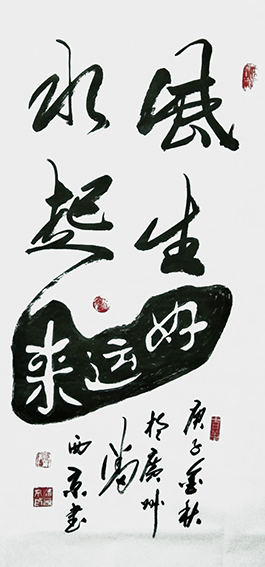 風生
水起
好运来
庚子金秋
於廣州
西京書